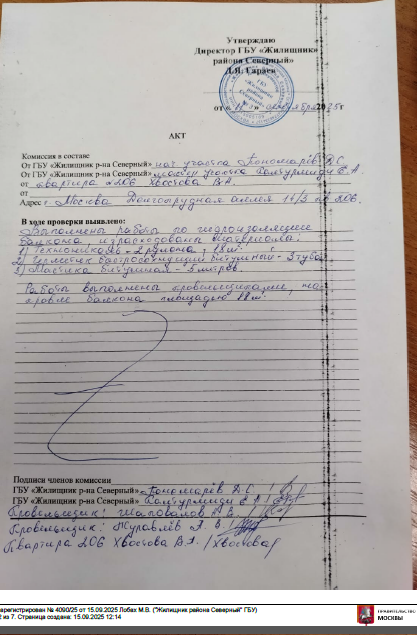 Утверждаю
Директор ГБУ «Жилищник»
района Северный»
Д.Я. Гараев
2025г
АКТ
Комиссия в составе
От ГБУ «Жилищник р-на Северный» нач участка Пономарёв Д.С.
От ГБУ «Жилищник р-на Северный» мастер участка
от квартира 206 Хвостова В.А.
от
Адрес г. Москва Долгопрудная аллея 206.
В ходе проверки выявлено:
Выполнены работы по гидроизоляции
балкона израсходованы материалы:
1) Технониколь - 2 рулона - 18м²
2) Герметик битумный - 3 тубы
3) Мастика битумная - 5 литров.
Работы выполнены кровельщиками, на
кровле балкона площадью 18м²
Подписи членов комиссии
ГБУ «Жилищник р-на Северный» Пономарёв Д.С.
ГБУ «Жилищник р-на Северный»
Кровельщик: Шаповалов А.В.
Кровельщик: Журавлёв А. В.
Квартира 206 Хвостова В.А. /Хвостова/
зарегистрирован № 4090/25 от 15.09.2025 Лобах М.В. ("Жилищник района Северный" ГБУ)
2 из 7. Страница создана: 15.09.2025 12:14
ПРАВИТЕЛЬСТВО
МОСКВЫ